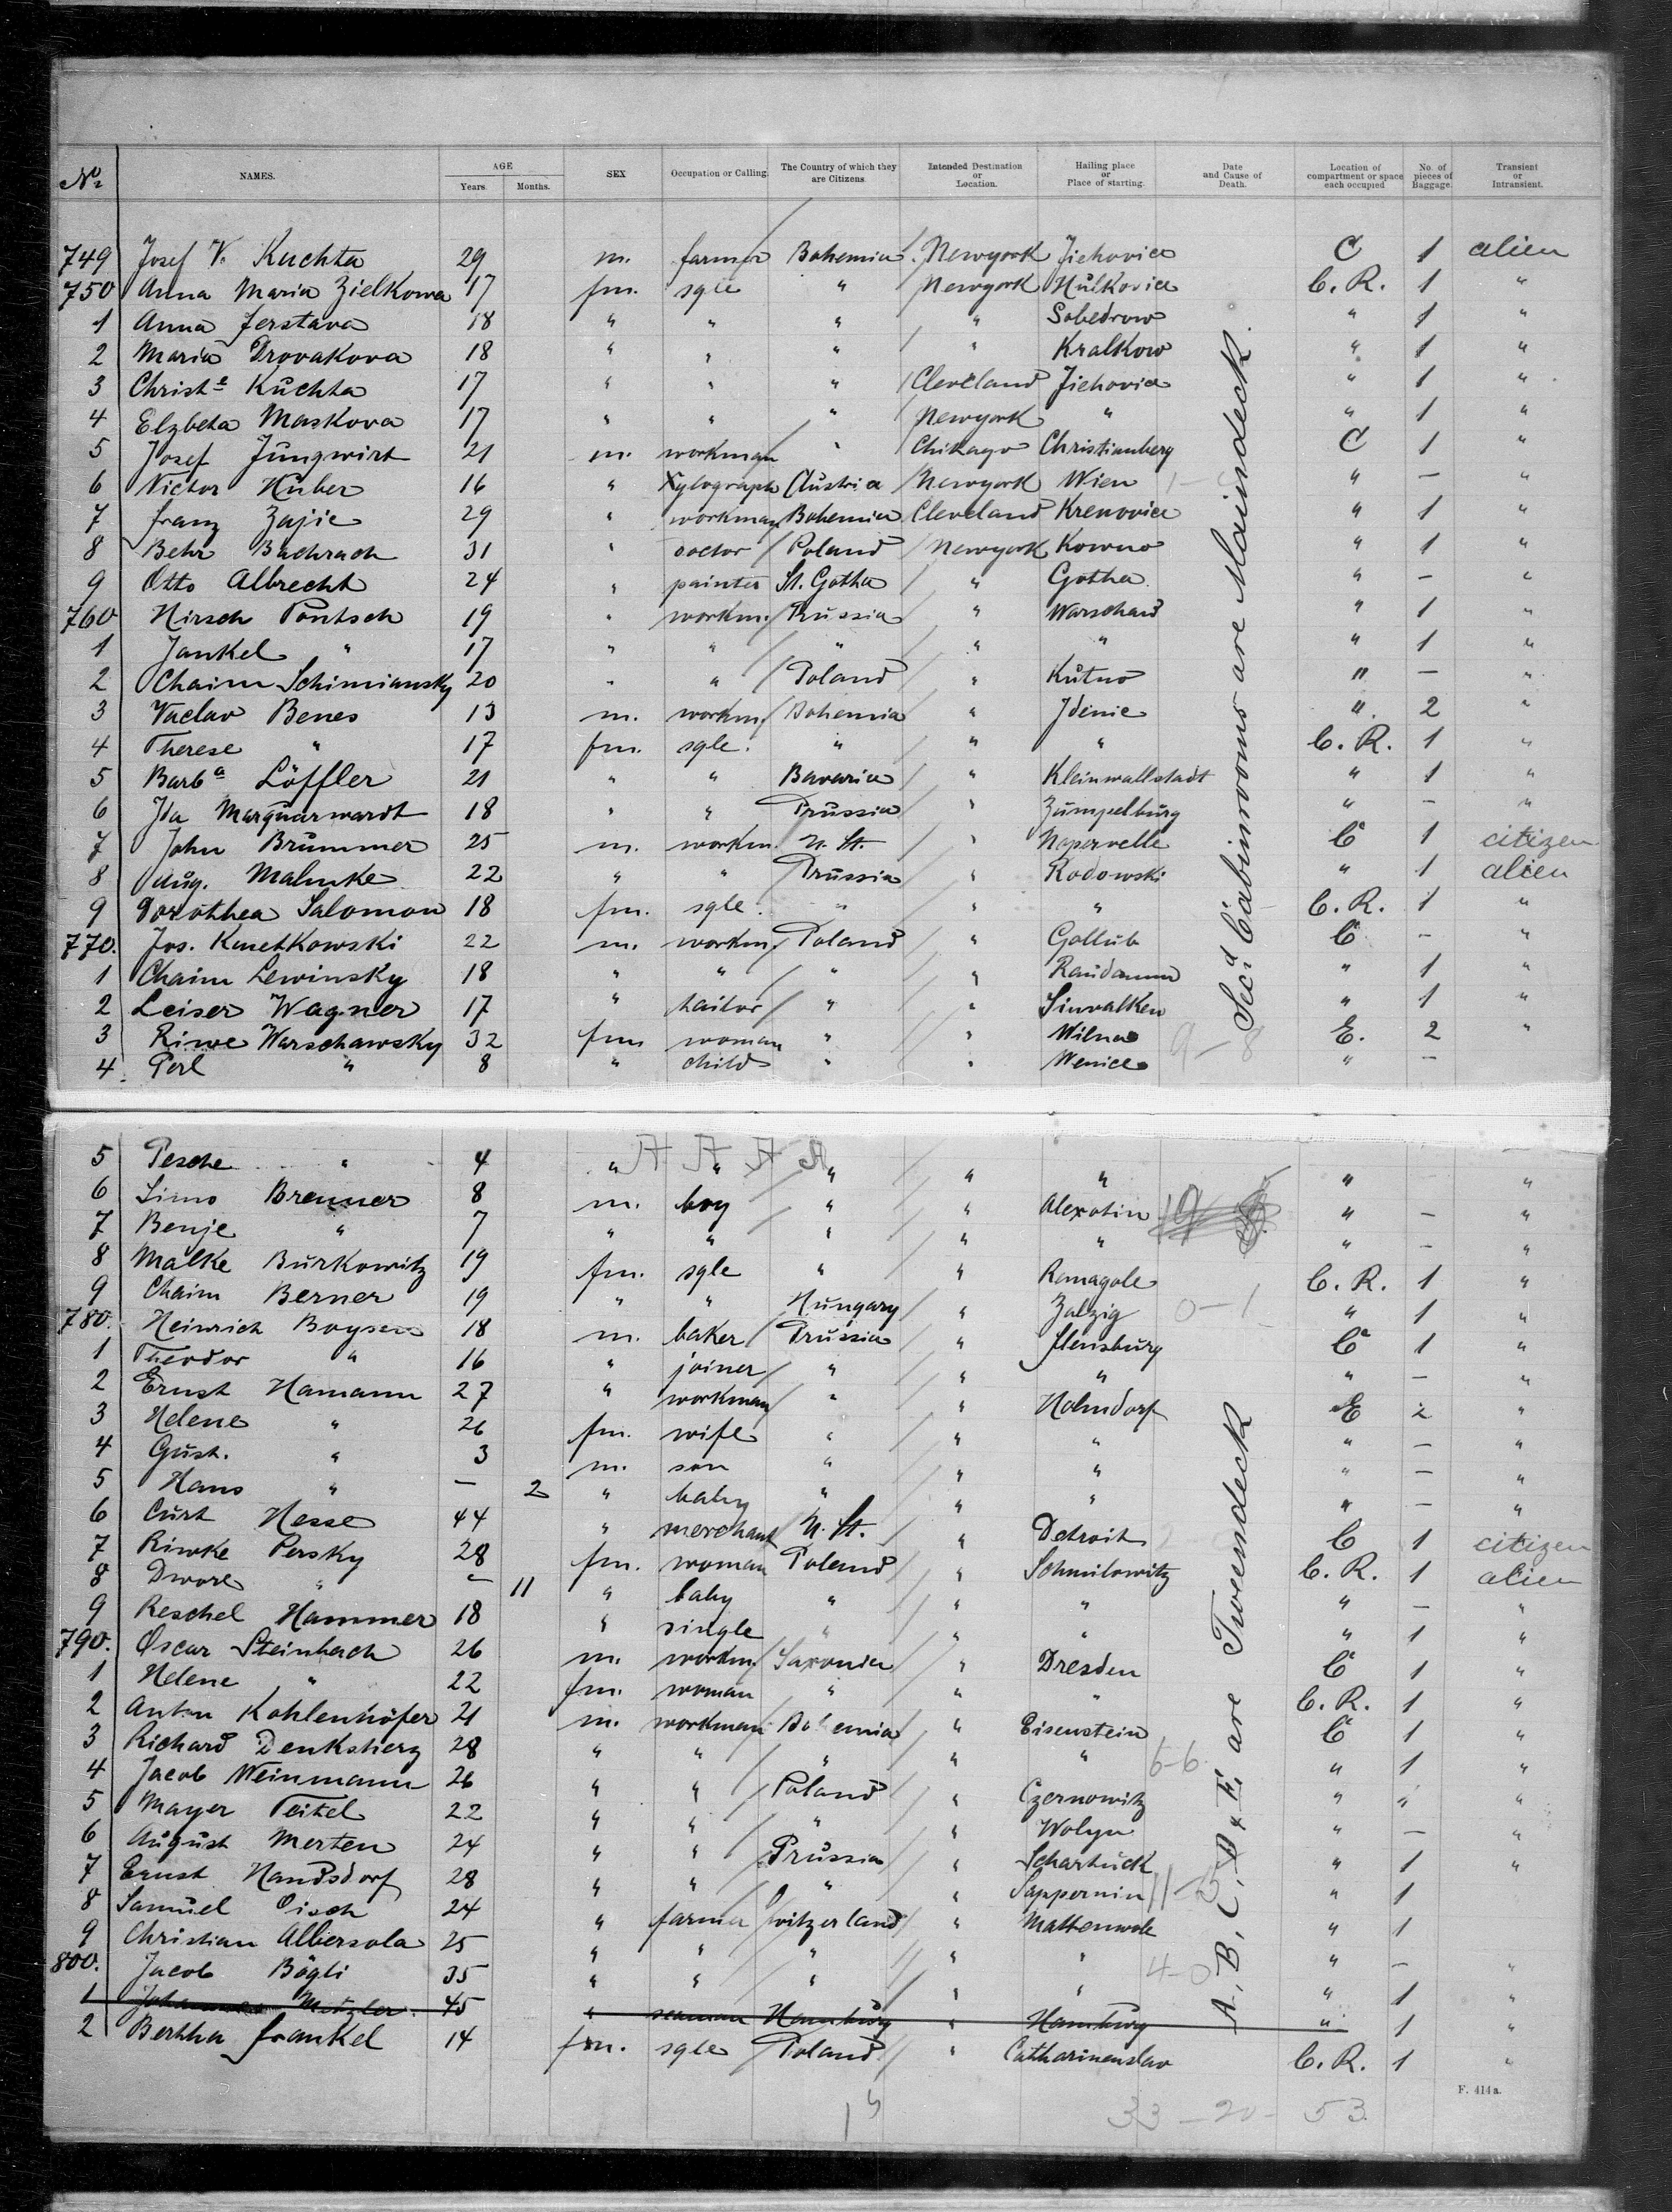 No. NAMES. AGE Years. Months. SEX Occupation or Calling. The Country of which they are Citizens. Intended Destination or Location. Hailing place or Place of starting. Date and Cause of Death. Location of compartment or space each occupied No. of pieces of Baggage. Transient or Intransient.
749 Josef V. Kuchta 29 m. farmer Bohemia Newyork Jiehovice C 1 alien
750 Anna Maria Zielkowa 17 fm. sgle " Newyork Hulkovice C. R. 1 "
1 Anna Jerstava 18 " " " " Sobedrow " 1 "
2 Maria Drovakova 18 " " " " Kralkow " 1 "
3 Christe Kuchta 17 " " " Cleveland Jiehovice " 1 "
4 Elzbeta Maskova 17 " " " Newyork " " 1 "
5 Josef Jungwirt 21 m. workman " Chikago Christianberg C 1 "
6 Victor Huber 16 " Xylograph Austria Newyork Wien " — "
7 Franz Zajic 29 " workman Bohemia Cleveland Krenovice " 1 "
8 Behr Bachrach 31 " doctor Poland Newyork Kowno " 1 "
9 Otto Albrecht 24 " painter St. Gotha " Gotha " — "
760 Hirsch Pontsch 19 " workm. Russia " Warschau " 1 "
1 Jankel " 17 " " " " " " 1 "
2 Chaim Schimiansky 20 " " Poland " Kutno " — "
3 Vaclav Benes 13 m. workm. Bohemia " Jdenie " 2 "
4 Therese " 17 fm. sgle. " " " C. R. 1 "
5 Barba Löffler 21 " " Bavaria " Kleinwallstadt " 1 "
6 Ida Marquarwardt 18 " " Prussia " Zumpelburg " — "
7 John Brummer 25 m. workm. U. St. " Napervelle C 1 citizen
8 Aug. Mahnke 22 " " Prussia " Rodowski " 1 alien
9 Dorothea Salomon 18 fm. sgle. " " " C. R. 1 "
770. Jos. Kmetkowski 22 m. workm. Poland " Gollub C — "
1 Chaim Lewinsky 18 " " " " Raudamm " 1 "
2 Leiser Wagner 17 " tailor " " Sinvalken " 1 "
3 Riwe Warschawsky 32 fm. woman " " Wilna E. 2 "
4. Perl " 8 " child " " Wenice " —
Secd Cabinrooms are Maindeck.
5 Pesche " 4 " " " " " " — "
A A A A
6 Simo Brenner 8 m. boy " " Alexotin " — "
7 Benje " 7 " " " " " " — "
8 Malke Burkowitz 19 fm. sgle " " Ramagole C. R. 1 "
9 Chaim Berner 19 " " Hungary " Zalzig 0 - 1 " 1 "
780. Heinrich Boysen 18 m. baker Prussia " Flensburg C 1 "
1 Theodor " 16 " joiner " " " " — "
2 Ernst Hamann 27 " workman " " Holmdorf E 2 "
3 Helene " 26 fm. wife " " " " — "
4 Gust. " 3 m. son " " " " — "
5 Hans " — 2 " baby " " " " — "
6 Curt Hesse 44 " merchant U. St. " Detroit C 1 citizen
7 Riwke Persky 28 fm. woman Poland " Schmilowitz C. R. 1 alien
8 Dwore " — 11 " baby " " " " — "
9 Reschel Hammer 18 " single " " " " 1 "
790. Oscar Steinbach 26 m. workm. Saxonia " Dresden C 1 "
1 Helene " 22 fm. woman " " " C. R. 1 "
2 Anton Kohlenhöfer 21 m. workman Bohemia " Eisenstein C 1 "
3 Richard Denkstierz 28 " " " " " 1 "
4 Jacob Weinmann 26 " " Poland " Czernowitz " " "
5 Mayer Teitel 22 " " " " Wolyn " — "
6 August Merten 24 " " Prussia " Schartuck " 1 "
7 Ernst Handsdorf 28 " " " " Sappernin " 1
8 Samuel Oisch 24 " farmer Switzerland " Mattenwole " 1
9 Christian Albersola 25 " " " " " " — "
800. Jacob Bögli 35 " " " " " " 1 "
1 Johannes Metzler 45 " seaman Hamburg " Hamburg " 1 "
2 Bertha Frankel 14 fm. sgle Poland " Catharinenslav C. R. 1 "
A, B, C, D & E are Tweendeck
F. 414a.
33 - 20 - 53.